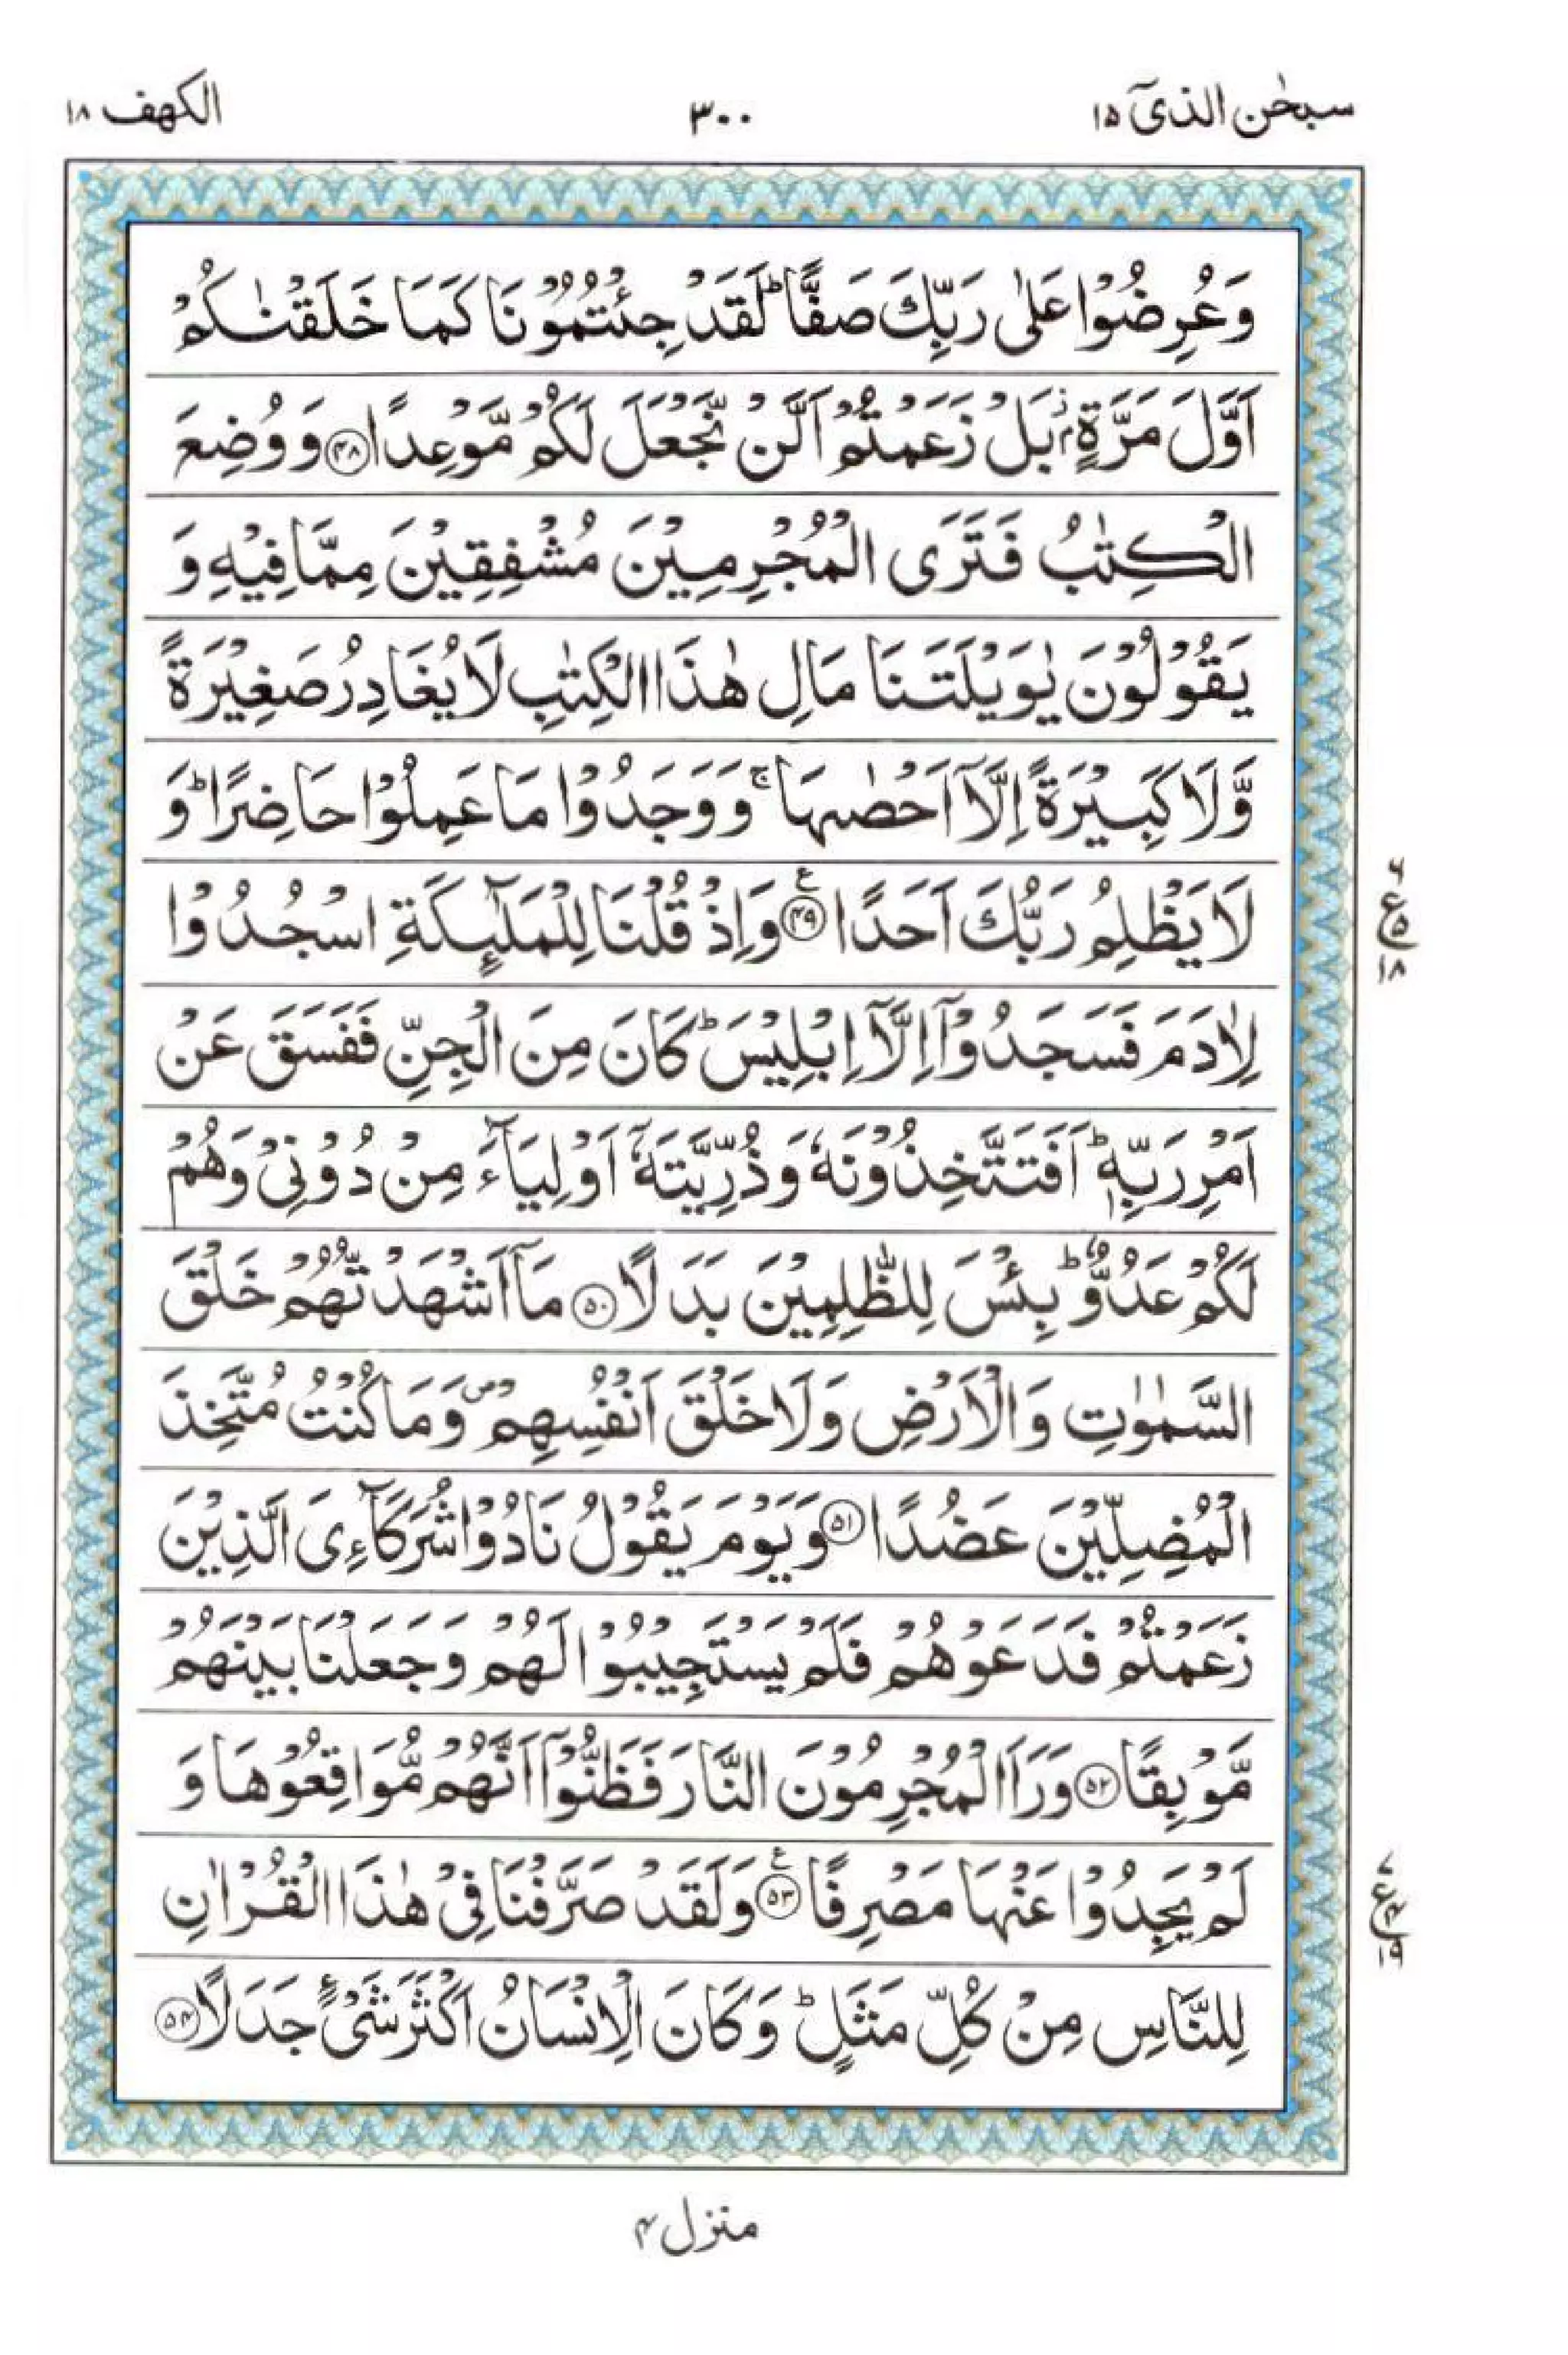 سبحٰن الذیٓ ۱۵
۳۰۰
الکھف ۱۸
وَعُرِضُوْا عَلٰی رَبِّكَ صَفًّا ؕ لَقَدْ جِئْتُمُوْنَا كَمَا خَلَقْنٰكُمْ
اَوَّلَ مَرَّةٍۭ ؗ بَلْ زَعَمْتُمْ اَلَّنْ نَّجْعَلَ لَكُمْ مَّوْعِدًا ﴿۴۸﴾ وَ وُضِعَ
الْكِتٰبُ فَتَرَی الْمُجْرِمِیْنَ مُشْفِقِیْنَ مِمَّا فِیْهِ وَ
یَقُوْلُوْنَ یٰوَیْلَتَنَا مَالِ هٰذَا الْكِتٰبِ لَا یُغَادِرُ صَغِیْرَةً
وَّلَا كَبِیْرَةً اِلَّاۤ اَحْصٰىهَا ۚ وَ وَجَدُوْا مَا عَمِلُوْا حَاضِرًا ؕ وَ
لَا یَظْلِمُ رَبُّكَ اَحَدًا ﴿۴۹﴾ ع وَاِذْ قُلْنَا لِلْمَلٰٓىِٕكَةِ اسْجُدُوْا
۶ ع ۵ ۱۸
لِاٰدَمَ فَسَجَدُوْۤا اِلَّاۤ اِبْلِیْسَ ؕ كَانَ مِنَ الْجِنِّ فَفَسَقَ عَنْ
اَمْرِ رَبِّهٖ ؕ اَفَتَتَّخِذُوْنَهٗ وَذُرِّیَّتَهٗۤ اَوْلِیَآءَ مِنْ دُوْنِیْ وَهُمْ
لَكُمْ عَدُوٌّ ؕ بِئْسَ لِلظّٰلِمِیْنَ بَدَلًا ﴿۵۰﴾ مَاۤ اَشْهَدْتُّهُمْ خَلْقَ
السَّمٰوٰتِ وَالْاَرْضِ وَلَا خَلْقَ اَنْفُسِهِمْ ۪ وَمَا كُنْتُ مُتَّخِذَ
الْمُضِلِّیْنَ عَضُدًا ﴿۵۱﴾ وَیَوْمَ یَقُوْلُ نَادُوْا شُرَكَآءِیَ الَّذِیْنَ
زَعَمْتُمْ فَدَعَوْهُمْ فَلَمْ یَسْتَجِیْبُوْا لَهُمْ وَجَعَلْنَا بَیْنَهُمْ
مَّوْبِقًا ﴿۵۲﴾ وَرَاَ الْمُجْرِمُوْنَ النَّارَ فَظَنُّوْۤا اَنَّهُمْ مُّوَاقِعُوْهَا وَ
لَمْ یَجِدُوْا عَنْهَا مَصْرِفًا ﴿۵۳﴾ ع وَلَقَدْ صَرَّفْنَا فِیْ هٰذَا الْقُرْاٰنِ
۷ ع ۴ ۱۹
لِلنَّاسِ مِنْ كُلِّ مَثَلٍ ؕ وَكَانَ الْاِنْسَانُ اَكْثَرَ شَیْءٍ جَدَلًا ﴿۵۴﴾
منزل ۴